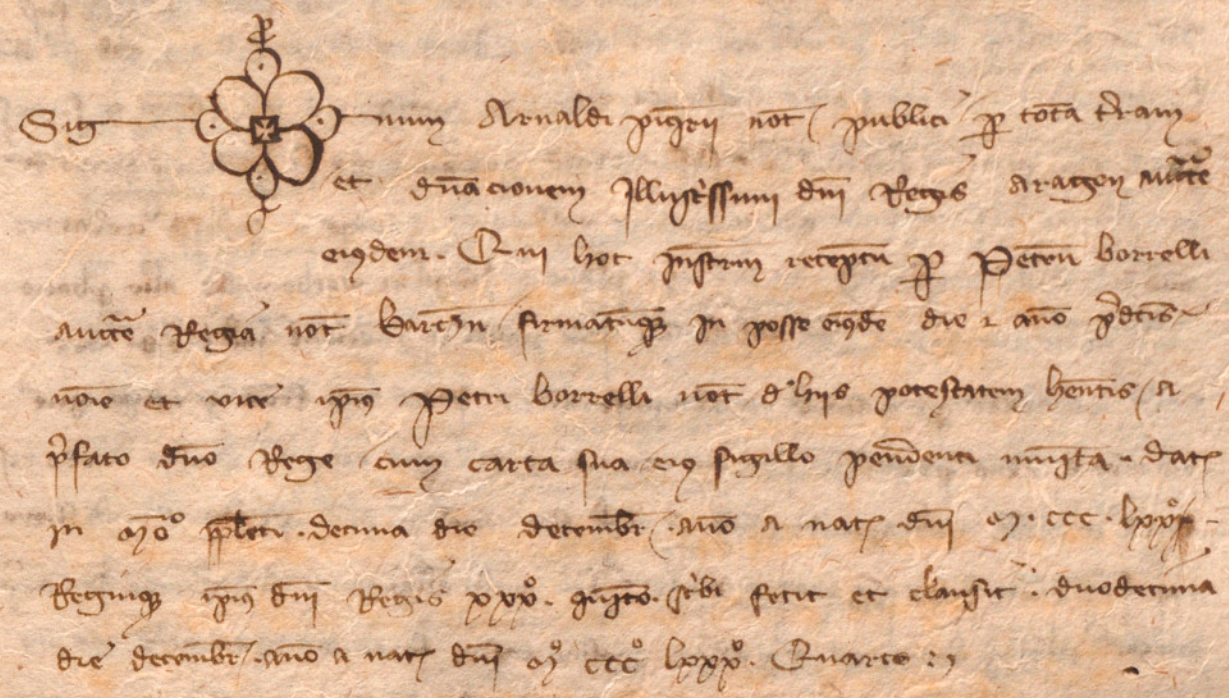 Sig num Arnaldi piq̃rii not̃ publici p̱ totã t̃ram
et dñacionem Illustrissimi dñi Regis Aragoñ auct̃te
eiusdem. Qui hoc Instr̃m receptũ p̱ Petrũ borrelli
auct̃te Regia not̃ barc̃hñ firmatũq̃ in posse eiusdẽ die ⁊ anno p̃dictis
noĩe et vice ip̃ius Petri borrelli not̃ d' hiis potestatem hñtis a
p̃fato dño Rege cum carta sua eius sigillo pendenti munita. dat̃
in mõ p̱pleti. decima die decembr̃. anno a nat̃ dñi M. ccc. lxxº
Regniq̃ ip̃ius dñi Regis xxxº. quinto. sc̃bi fecit et clausit. duodecima
die decembr̃. anno a nat̃ dñi Mº cccº lxxxº. Quarto